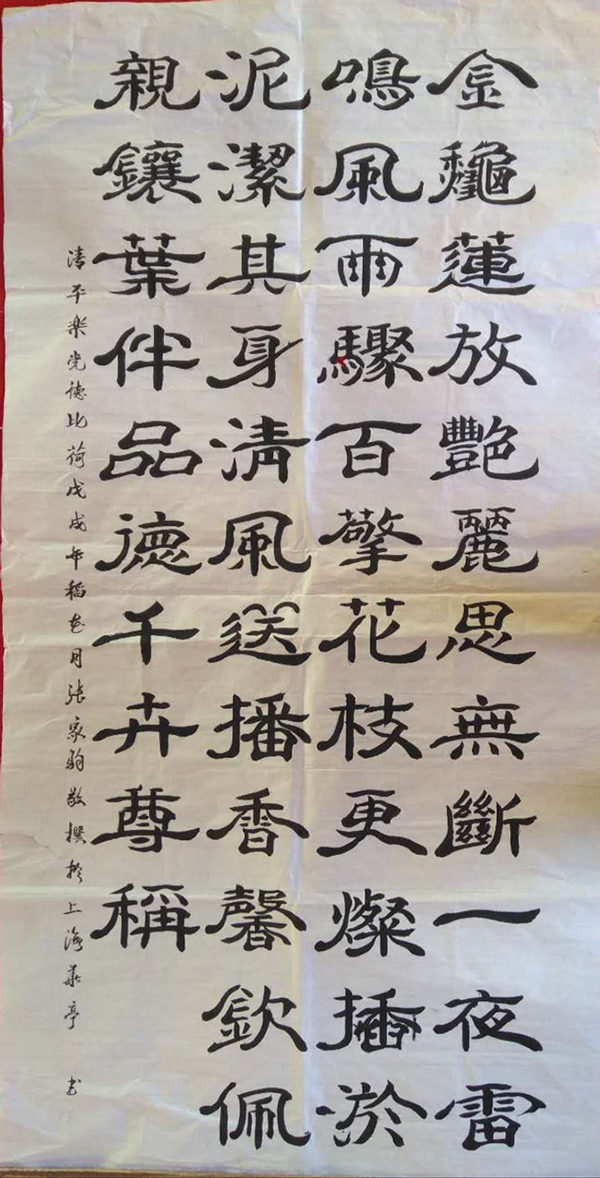 金龝蓮放艷麗思無斷一夜雷
鳴風雨驟百擎花枝更燦插淤
泥潔其身清風送播香馨欽佩
親鑲葉伴品德千卉尊稱
清平樂党德比荷戊戌年稻花月张家驹敬撰於上海華亭 书